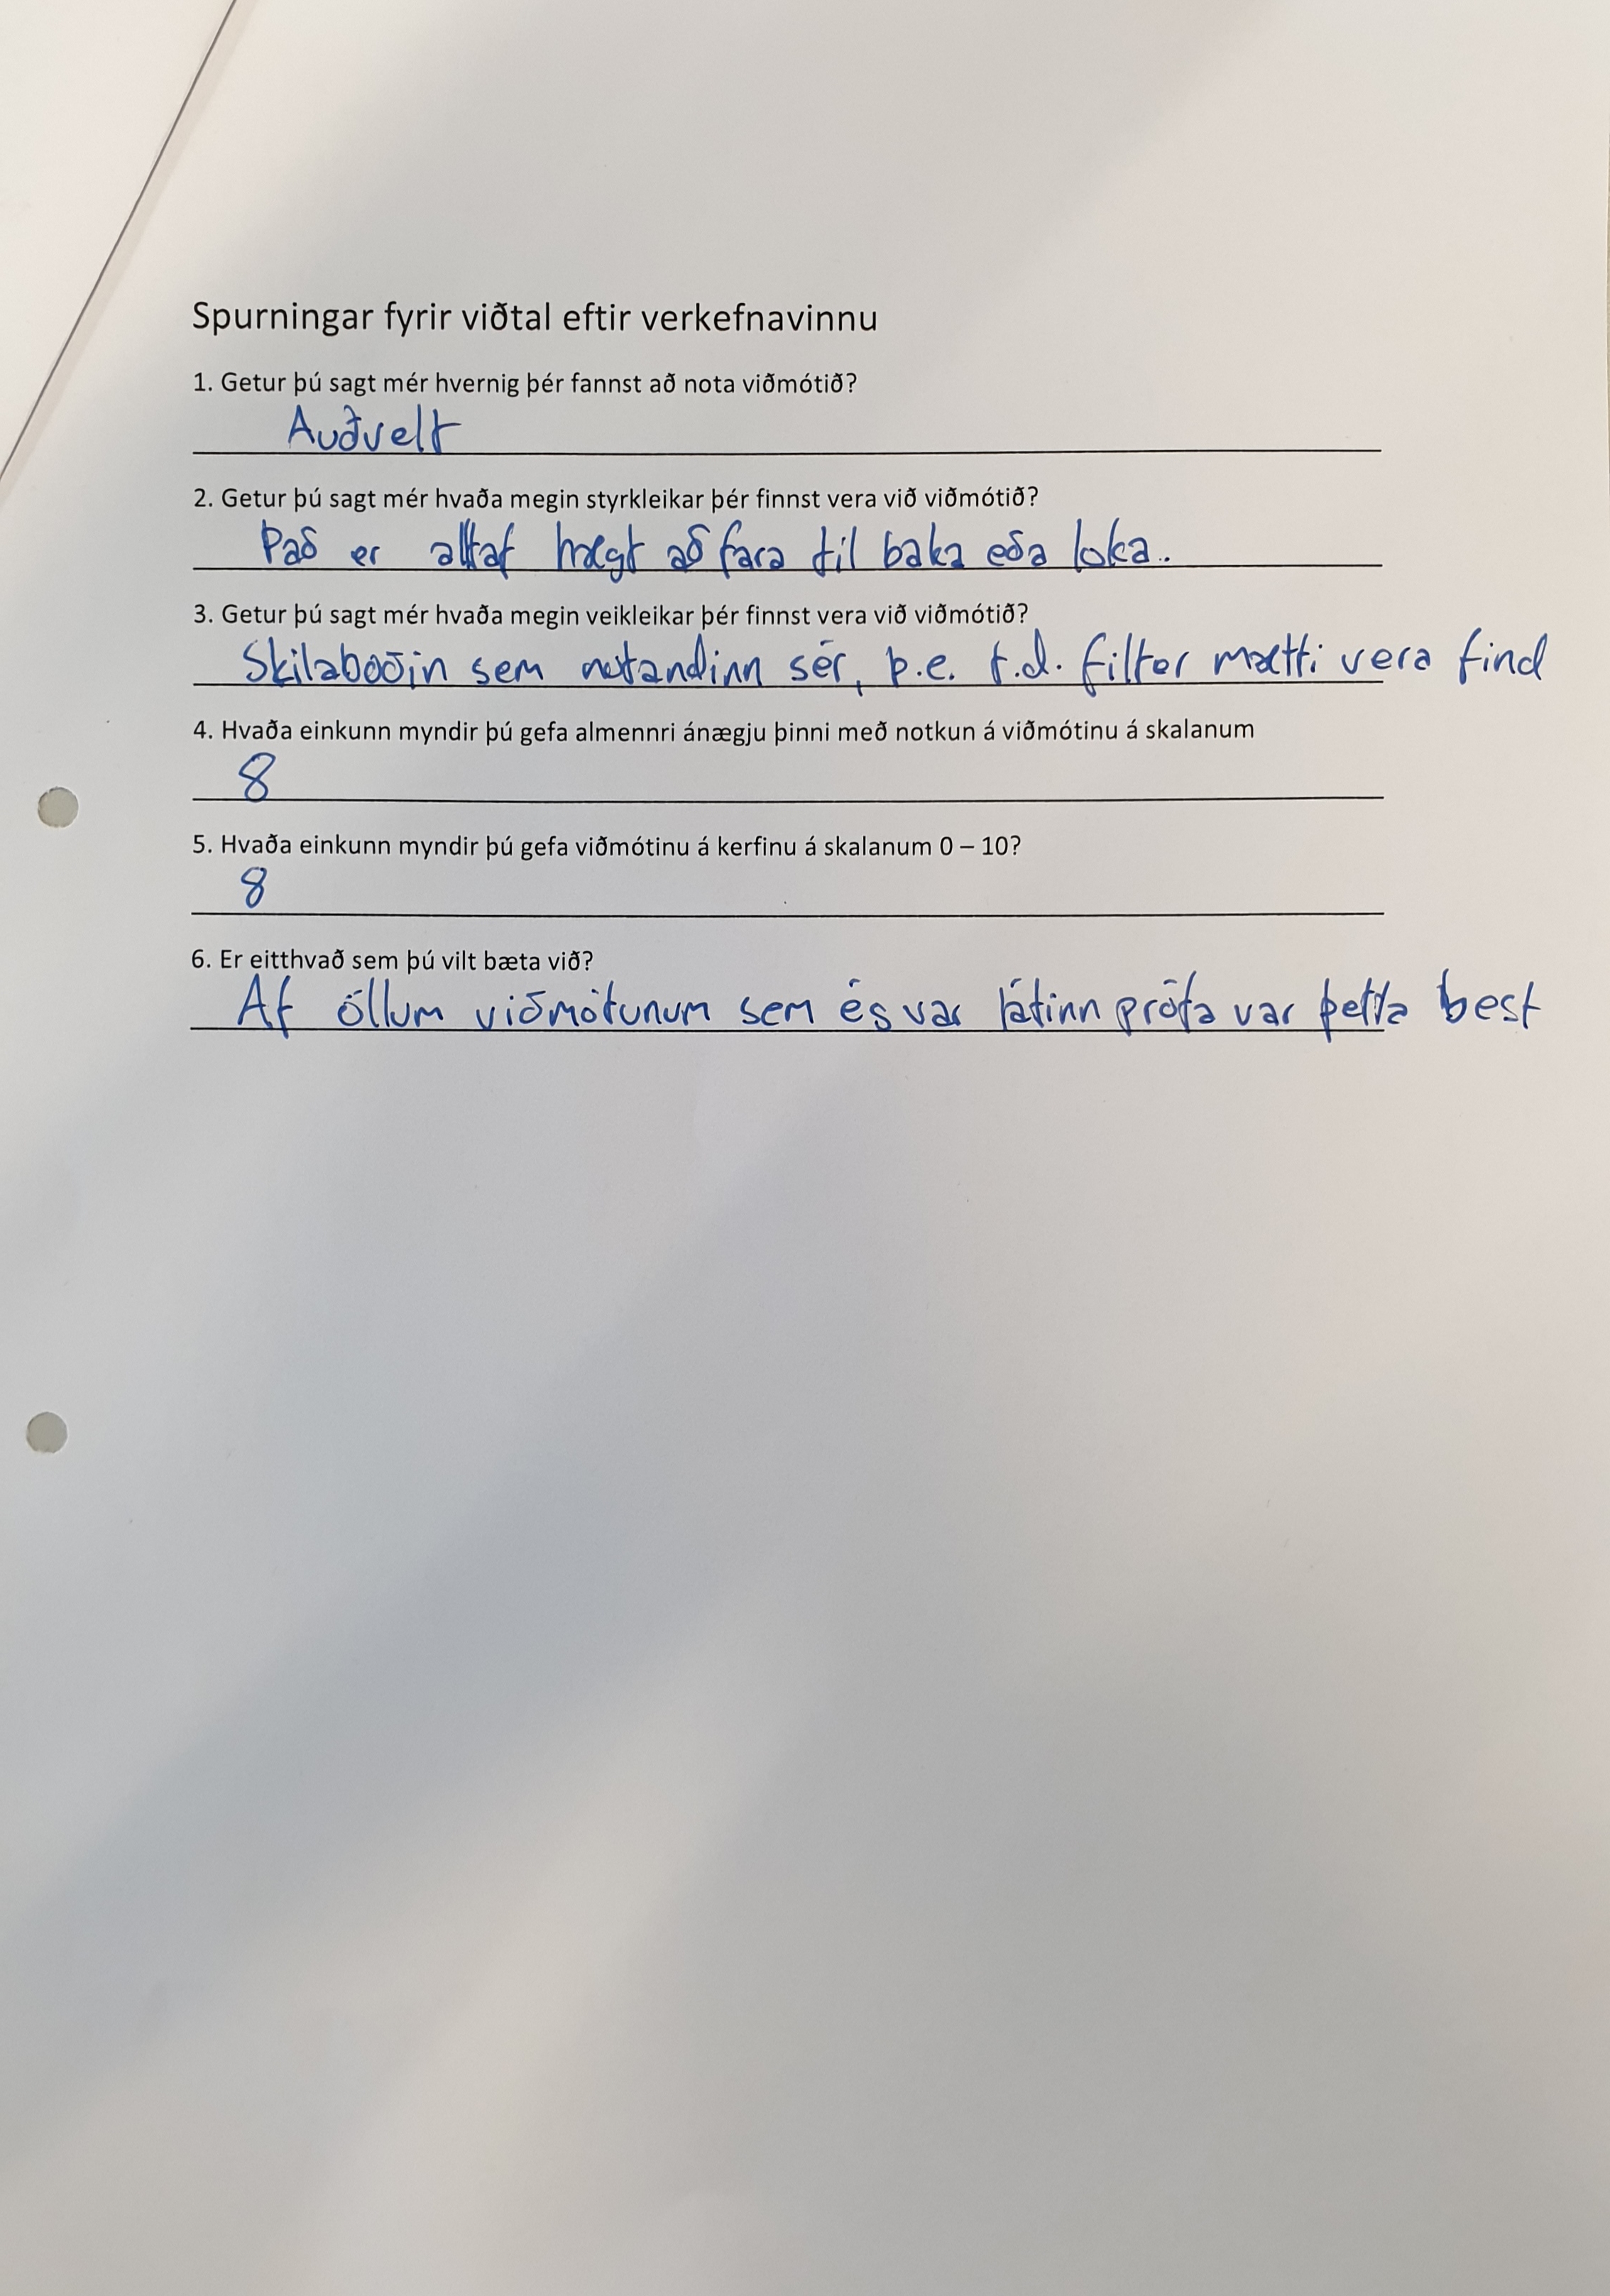 Spurningar fyrir viðtal eftir verkefnavinnu
1. Getur þú sagt mér hvernig þér fannst að nota viðmótið?
Auðvelt
2. Getur þú sagt mér hvaða megin styrkleikar þér finnst vera við viðmótið?
Það er alltaf hægt að fara til baka eða loka.
3. Getur þú sagt mér hvaða megin veikleikar þér finnst vera við viðmótið?
Skilaboðin sem notandinn sér, þ.e. t.d. filter mætti vera find
4. Hvaða einkunn myndir þú gefa almennri ánægju þinni með notkun á viðmótinu á skalanum
8
5. Hvaða einkunn myndir þú gefa viðmótinu á kerfinu á skalanum 0 – 10?
8
6. Er eitthvað sem þú vilt bæta við?
Af öllum viðmótunum sem ég var látinn prófa var þetta best